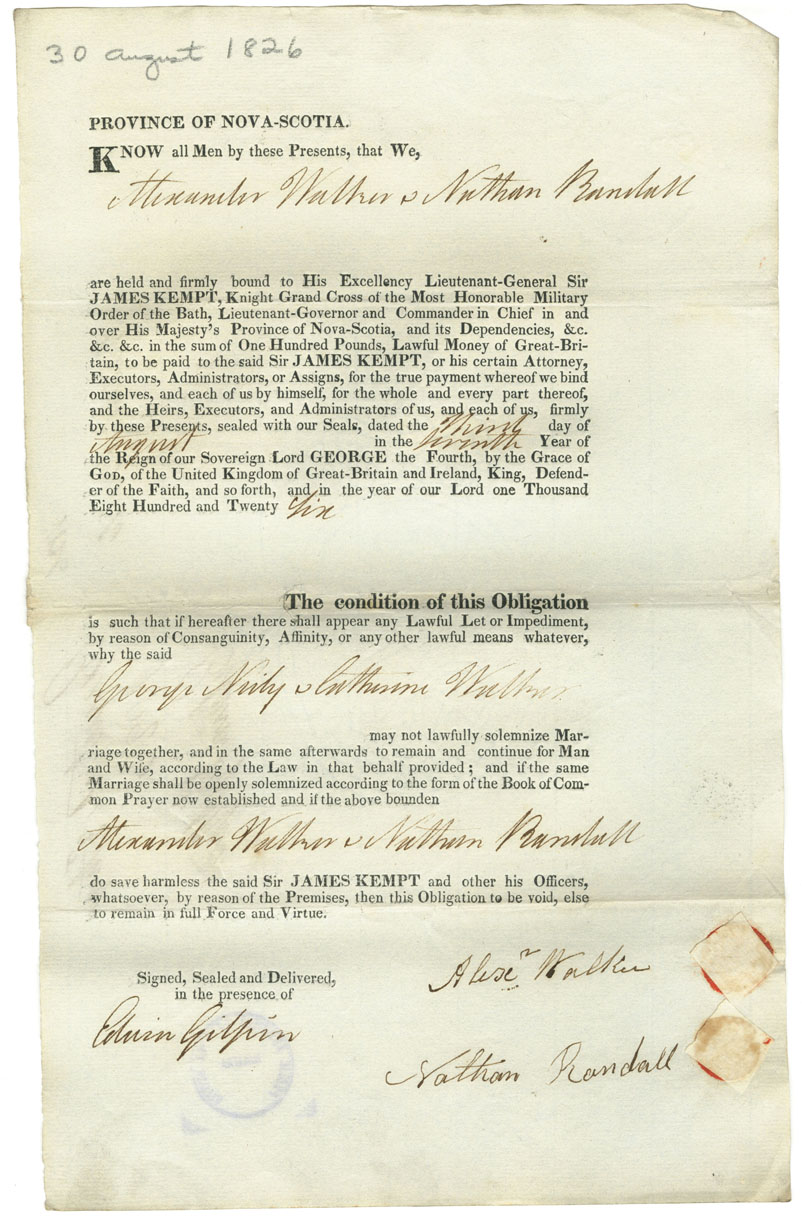 30 august 1826
PROVINCE OF NOVA-SCOTIA.
KNOW all Men by these Presents, that We,
Alexander Walker & Nathan Randall
are held and firmly bound to His Excellency Lieutenant-General Sir
JAMES KEMPT, Knight Grand Cross of the Most Honorable Military
Order of the Bath, Lieutenant-Governor and Commander in Chief in and
over His Majesty's Province of Nova-Scotia, and its Dependencies, &c.
&c. &c. in the sum of One Hundred Pounds, Lawful Money of Great-Bri-
tain, to be paid to the said Sir JAMES KEMPT, or his certain Attorney,
Executors, Administrators, or Assigns, for the true payment whereof we bind
ourselves, and each of us by himself, for the whole and every part thereof,
and the Heirs, Executors, and Administrators of us, and each of us, firmly
by these Presents, sealed with our Seals, dated the day of
August in the seventh Year of
the Reign of our Sovereign Lord GEORGE the Fourth, by the Grace of
GOD, of the United Kingdom of Great-Britain and Ireland, King, Defend-
er of the Faith, and so forth, and in the year of our Lord one Thousand
Eight Hundred and Twenty Six
The condition of this Obligation
is such that if hereafter there shall appear any Lawful Let or Impediment,
by reason of Consanguinity, Affinity, or any other lawful means whatever,
why the said
George Neily & Catherine Walker
may not lawfully solemnize Mar-
riage together, and in the same afterwards to remain and continue for Man
and Wife, according to the Law in that behalf provided; and if the same
Marriage shall be openly solemnized according to the form of the Book of Com-
mon Prayer now established and if the above bounden
Alexander Walker & Nathan Randall
do save harmless the said Sir JAMES KEMPT and other his Officers,
whatsoever, by reason of the Premises, then this Obligation to be void, else
to remain in full Force and Virtue.
Signed, Sealed and Delivered,
in the presence of
Edwin Gilpin
Alexr Walker
Nathan Randall